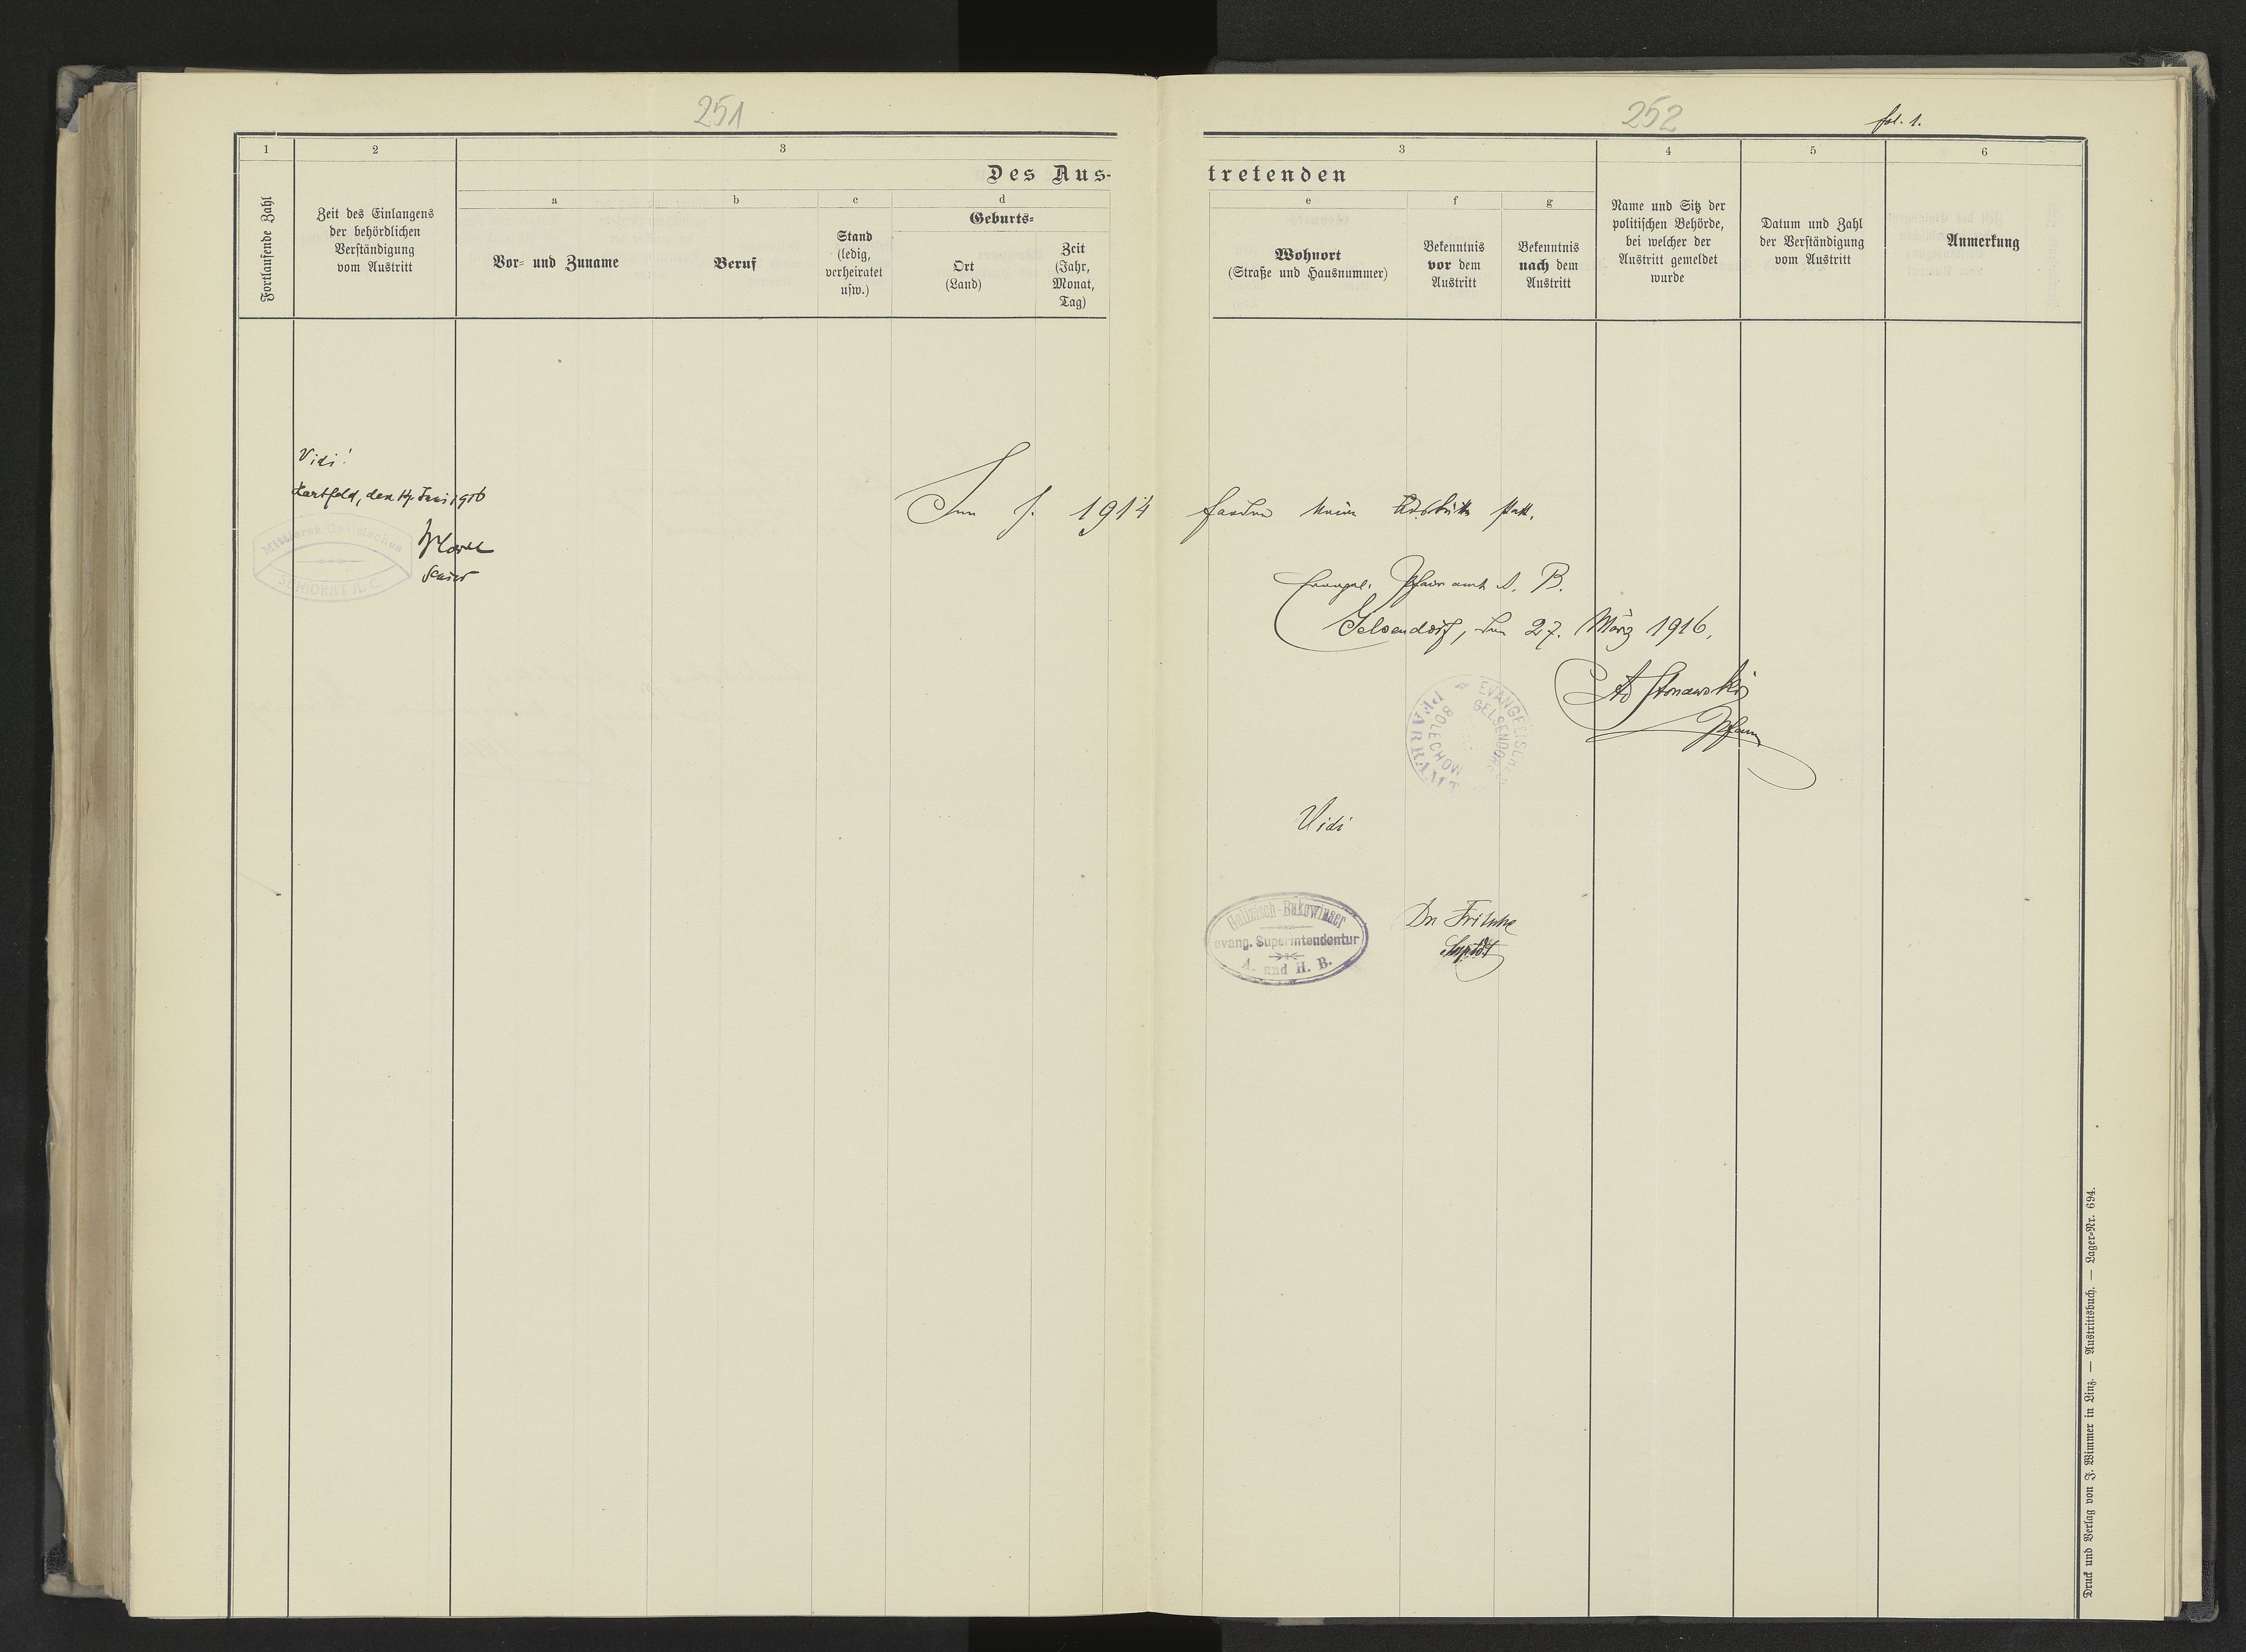 251
1
2
3
Des Aus-
Fortlaufende Zahl
Zeit des Einlangens
der behördlichen
Verständigung
vom Austritt
a
Vor- und Zuname
b
Beruf
c
Stand
(ledig,
verheiratet
usw.)
d
Geburts-
Ort
(Land)
Zeit
(Jahr,
Monat,
Tag)
Vidi!
Hartfeld, den 14. Juni 1916
Senior
Mittleres Galizisches
SENIORAT A. C.
252
fol. 1.
3
4
5
6
tretenden
e
Wohnort
(Straße und Hausnummer)
f
Bekenntnis
vor dem
Austritt
g
Bekenntnis
nach dem
Austritt
Name und Sitz der
politischen Behörde,
bei welcher der
Austritt gemeldet
wurde
Datum und Zahl
der Verständigung
vom Austritt
Anmerkung
Im J. 1914 fanden keine Austritte statt.
Evangel. Pfarramt A. B.
Gelsendorf, den 27. März 1916.
Stonawski
Pfarrer
EVANGELISCHES
PFARRAMT
GELSENDORF
BOLECHOW
Vidi
Galizisch-Bukowinaer
evang. Superintendentur
A. und H. B.
Dr Fritsche
Suptdt
Druck und Verlag von J. Wimmer in Linz. — Austrittsbuch. — Lager-Nr. 694.